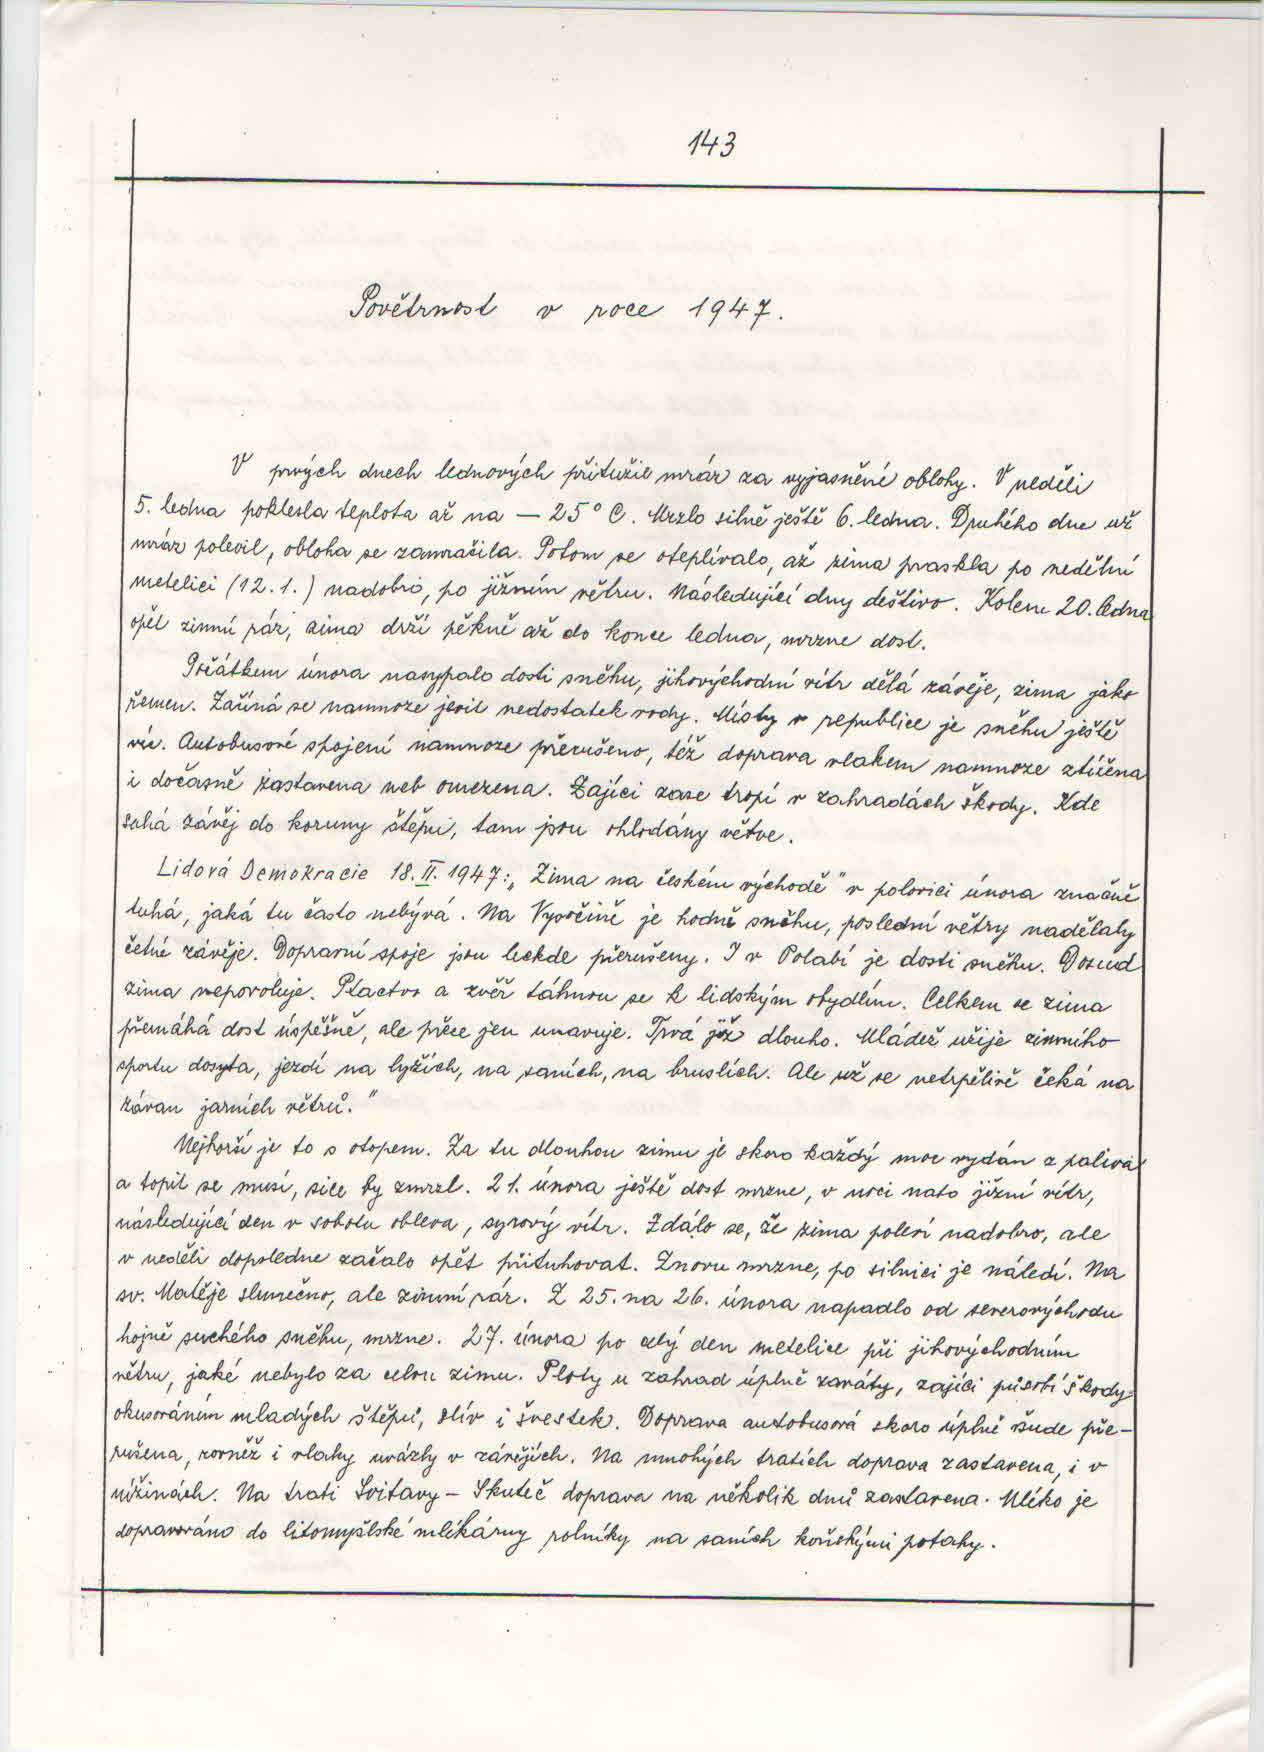 143
Povětrnost v roce 1947.
V prvých dnech lednových přitužil mráz za vyjasněné oblohy. V neděli
5. ledna poklesla teplota až na – 25° C. Mrzlo silně ještě 6. ledna. Druhého dne už
mráz polevil, obloha se zamračila. Potom se oteplívalo, až zima praskla po nedělní
metelici (12.1.) nadobro, po jižním větru. Následující dny deštivo. Kolem 20. ledna
opět zimní ráz, zima drží pěkně až do konce ledna, mrzne dost.
Počátkem února nasypalo dosti sněhu, jihovýchodní vítr dělá závěje, zima jako
řemen. Začíná se namnoze jevit nedostatek vody. Místy v republice je sněhu ještě
víc. Autobusové spojení namnoze přerušeno, též doprava vlakem namnoze ztížena
i dočasně zastavena neb omezena. Zajíci zase tropí v zahradách škody. Kde
sahá závěj do koruny štěpů, tam jsou ohlodány větve.
Lidová Demokracie 18.II.1947: „Zima na českém východě" v polovici února značně
tuhá, jaká tu často nebývá. Na Vysočině je hodně sněhu, poslední větry nadělaly
četné závěje. Dopravní spoje jsou leckde přerušeny. I v Polabí je dosti sněhu. Dosud
zima nepovoluje. Ptactvo a zvěř táhnou se k lidským obydlím. Celkem se zima
přemáhá dost úspěšně, ale přece jen unavuje. Trvá již dlouho. Mládež užije zimního
sportu dosyta, jezdí na lyžích, na saních, na bruslích. Ale už se netrpělivě čeká na
závan jarních větrů."
Nejhorší je to s otopem. Za tu dlouhou zimu je skoro každý moc vydán z paliva
a topit se musí, sice by zmrzl. 21. února ještě dost mrzne, v noci nato jižní vítr,
následující den v sobotu obleva, syrový vítr. Zdálo se, že zima poleví nadobro, ale
v neděli dopoledne začalo opět přituhovat. Znovu mrzne, po silnici je náledí. Na
sv. Matěje slunečno, ale zimní ráz. Z 25. na 26. února napadlo od severovýchodu
hojně suchého sněhu, mrzne. 27. února po celý den metelice při jihovýchodním
větru, jaké nebylo za celou zimu. Ploty u zahrad úplně zaváty, zajíci působí škody
okusováním mladých štěpů, slív i švestek. Doprava autobusová skoro úplně všude pře-
rušena, rovněž i vlaky uvázly v závějích. Na mnohých tratích doprava zastavena, i v
nížinách. Na trati Svitavy – Skuteč doprava na několik dnů zastavena. Mléko je
dopravováno do litomyšlské mlékárny rolníky na saních koňskými potahy.